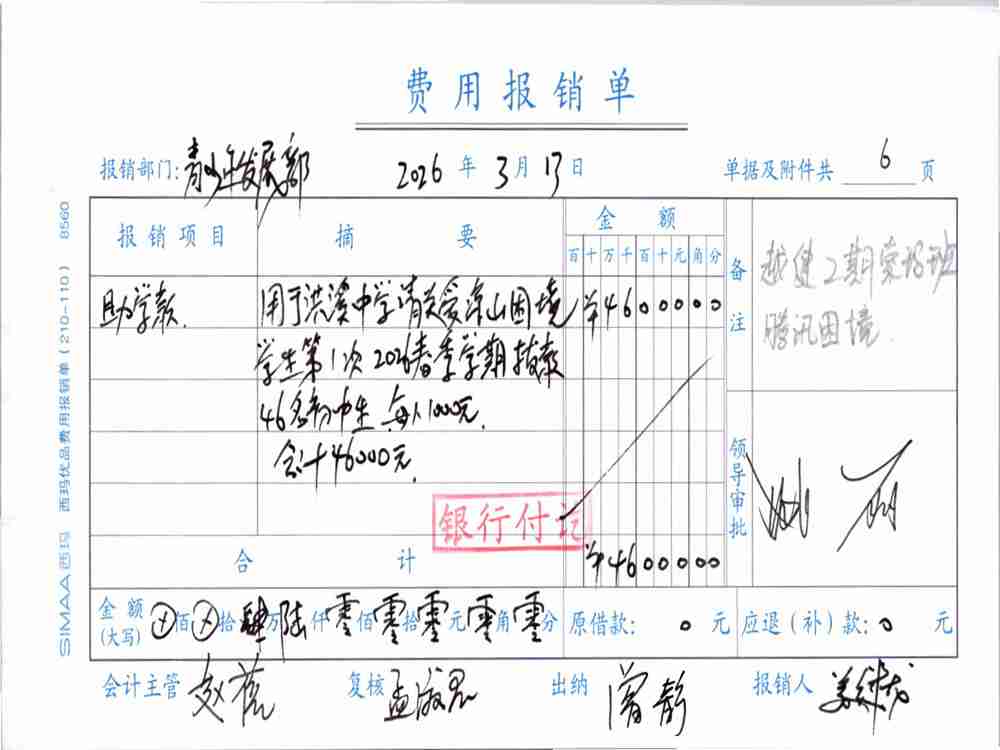 费用报销单
报销部门：青少年发展部 2026年3月17日 单据及附件共 6 页
SIMAA 西玛 西玛优品费用报销单（210-110） 8560
报销项目 摘要 金额 备注
百十万千百十元角分
助学款 用于洪溪中学情关爱 山困境 ¥4600000
学生第1次2026春季学期拨款
46名初中生 每人1000元.
合计46000元.
2期 班
腾讯困境
领导审批
银行付讫
合计 ¥4600000
金额（大写） 佰 拾肆万陆仟零佰零拾零元零角零分 原借款： 0 元 应退（补）款：0 元
会计主管 赵 复核 孟淑 出纳 曾静 报销人